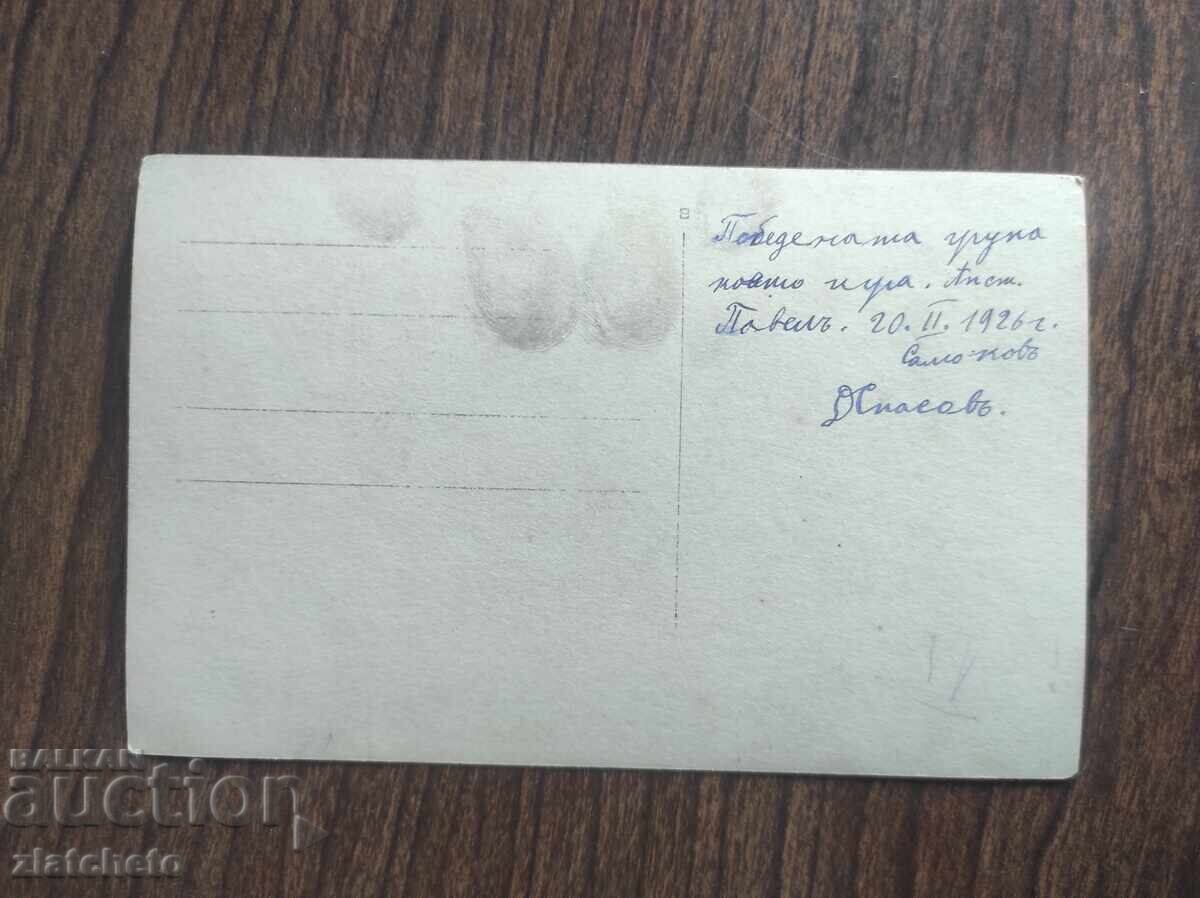 Победената група
която игра. Апст.
Павелъ. 20. II. 1926 г.
Само-ковъ
ДСпасовъ.
BALKAN
auction
zlatcheto